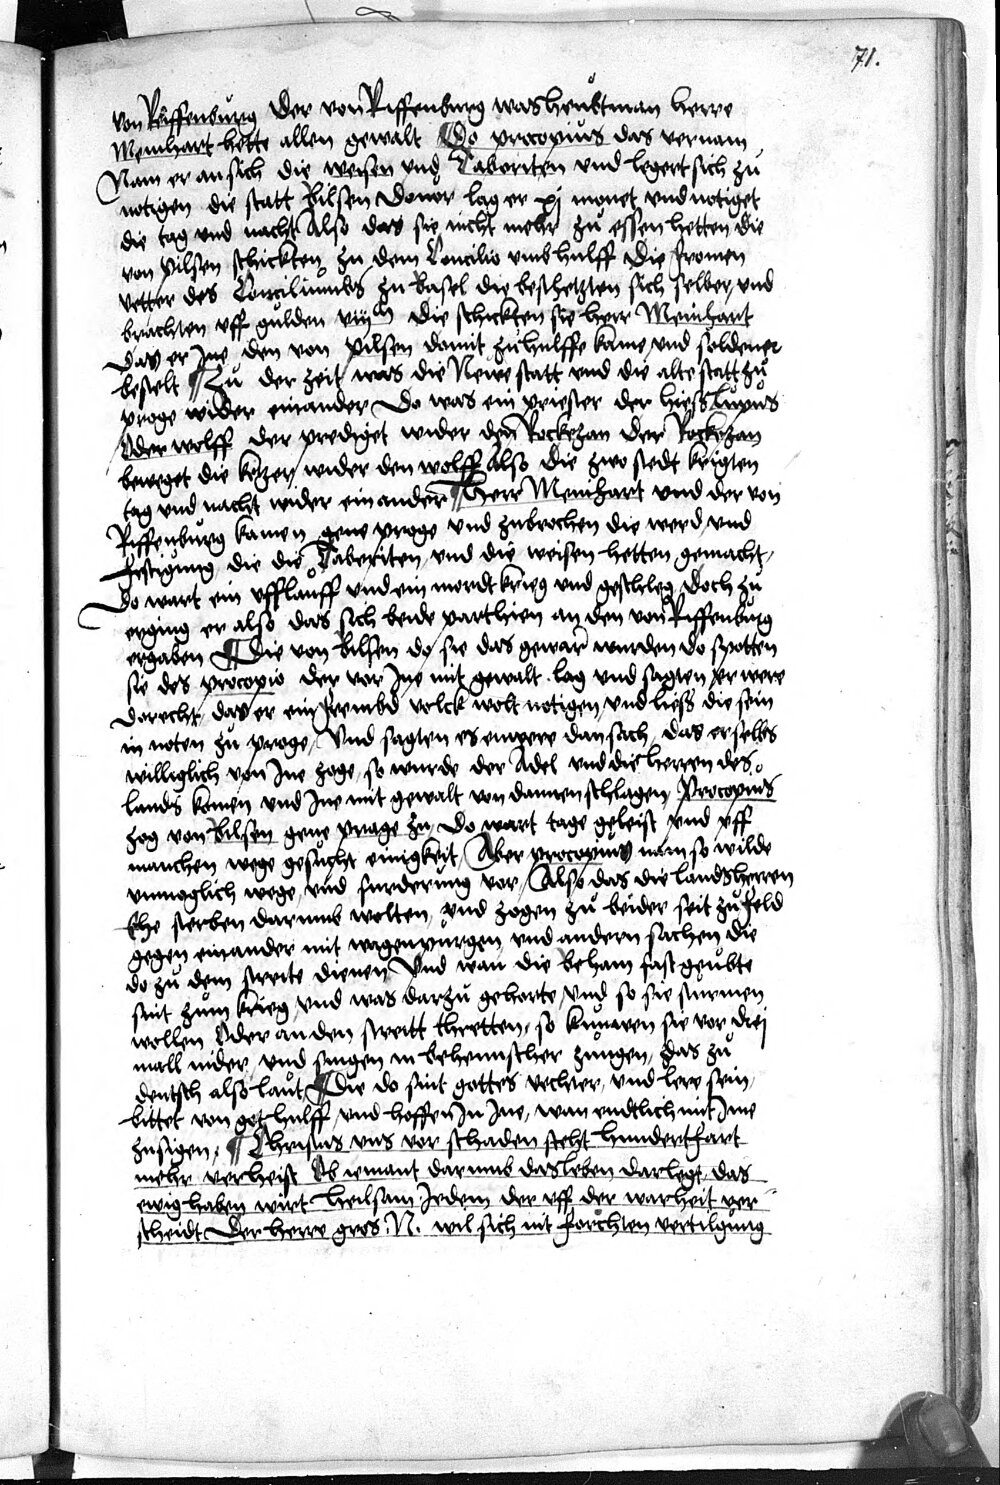 71.
von Riffenburg Der von Riffenburg was heubtman herre
Meinhart hette allen gewalt ¶ Do procopius das vernam
Nam er an sich die weisen vnd Taboriten vnd legert sich zu
notigen die statt Bilsen Dovor lag er xj monet vnd notiget
die tag vnd nacht Also das sie nicht mehr zu essen hetten die
von pilsen schickten zu dem Concilio vmb hulff Die fromen
vetter des Conciliumbs zu Basel die beschetzten sich selber vnd
brachten vff gulden viijm Die schickten sie herr Meinhart
Das er Ine den von pilsen domit zu hulffe kame vnd soldener
bestelt ¶ Zu der zeit was die Newe statt vnd die alte statt zu
proge wider einander Do was ein priester der hiess lupus
Oder wolff der prediget wider den Rockezan Der Rockezan
beweget die ketzer wider den wolff Also die zwo stedt krigten
tag vnd nacht wider einander ¶ Herr Meinhart vnd der von
Riffenburg kamen gene proge vnd zubrochen die werd vnd
festigung die die Taboriten vnd die weisen hetten gemacht
Do wart ein vfflauff vnd ein mordt krieg vnd geschleg Doch zu
erging er also das sich beide parthien an den von Riffenburg
ergaben ¶ Die von Bilsen do sie das gewar wurden do spotten
sie des procopio der vor Ine mit gewalt lag vnd sagten er were
dorecht das er ein frembd volck wolt notigen vnd liess die sein
in noten zu proge Vnd sagten es enwere dan sach das er selbs
williglich von Ine zoge so wurde der Adel vnd die herren des
lands komen vnd Ine mit gewalt von dannen schlagen Procopius
zog von Bilsen gene prage zu Do wart tage geleist vnd vff
manchen wege gesucht einigkeit Aber procopius nam so wilde
vnmoglich wege vnd furderung vor Also das die landsherren
Ehe sterben darumb wolten vnd zogen zu beider seit zu feld
gegen einander mit wagenburgen vnd andern sachen die
do zu dem streite dienen Vnd wan die beham fast geubte
sint zum krieg vnd was darzu gehorte vnd so sie sturmen
wollen Oder an den streitt thretten so knuwen sie vor drej
mall nider vnd singen in behemischer zungen das zu
deutsch also laut ¶ Die do sint gottes vechter vnd lere sein
bittet von got hulff vnd hoffen In Ine wan endtlich mit Ine
zusigen ¶ Christus vns vor schaden steht hundertfart
mehr verheist Ob iemant darumb das leben darlegt das
ewig haben wirt heilsam Jedem der vff der warheit ver
scheidt Der herre gros N. wil sich nit forchten vertilgung